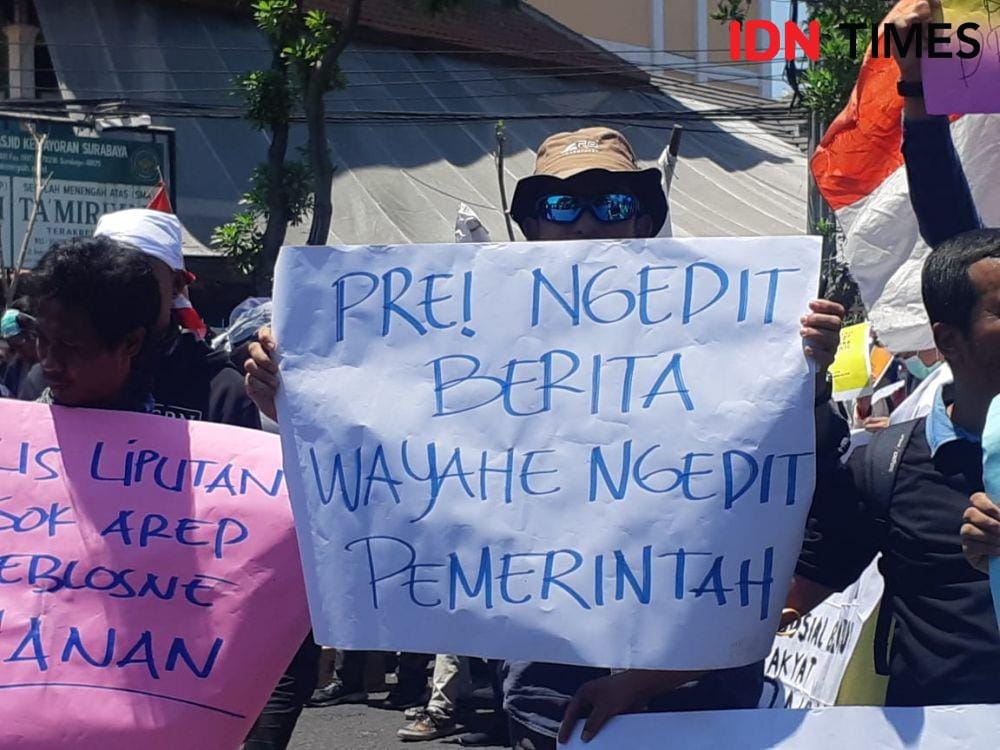 IDN TIMES
KEMAYORAN SURABAYA
SEKOLAH MENENGAH ATAS (SMA
TA'MIRU
PRE! NGEDIT
BERITA
WAYAHE NGEDIT
PEMERINTAH
LIS LIPUTAN
SOK AREP
EBLOSNE
ANAN
AKYAT